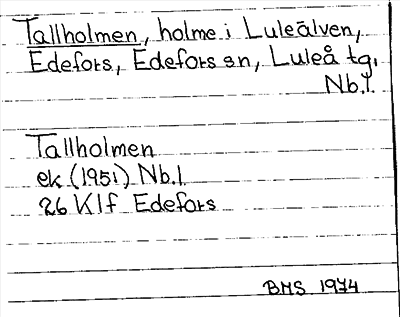 Tallholmen, holme i Luleälven,
Edefors, Edefors sn, Luleå tg,
Nb.l.
Tallholmen
ek (1951) Nb.l.
26 K1f Edefors
BMS 1974